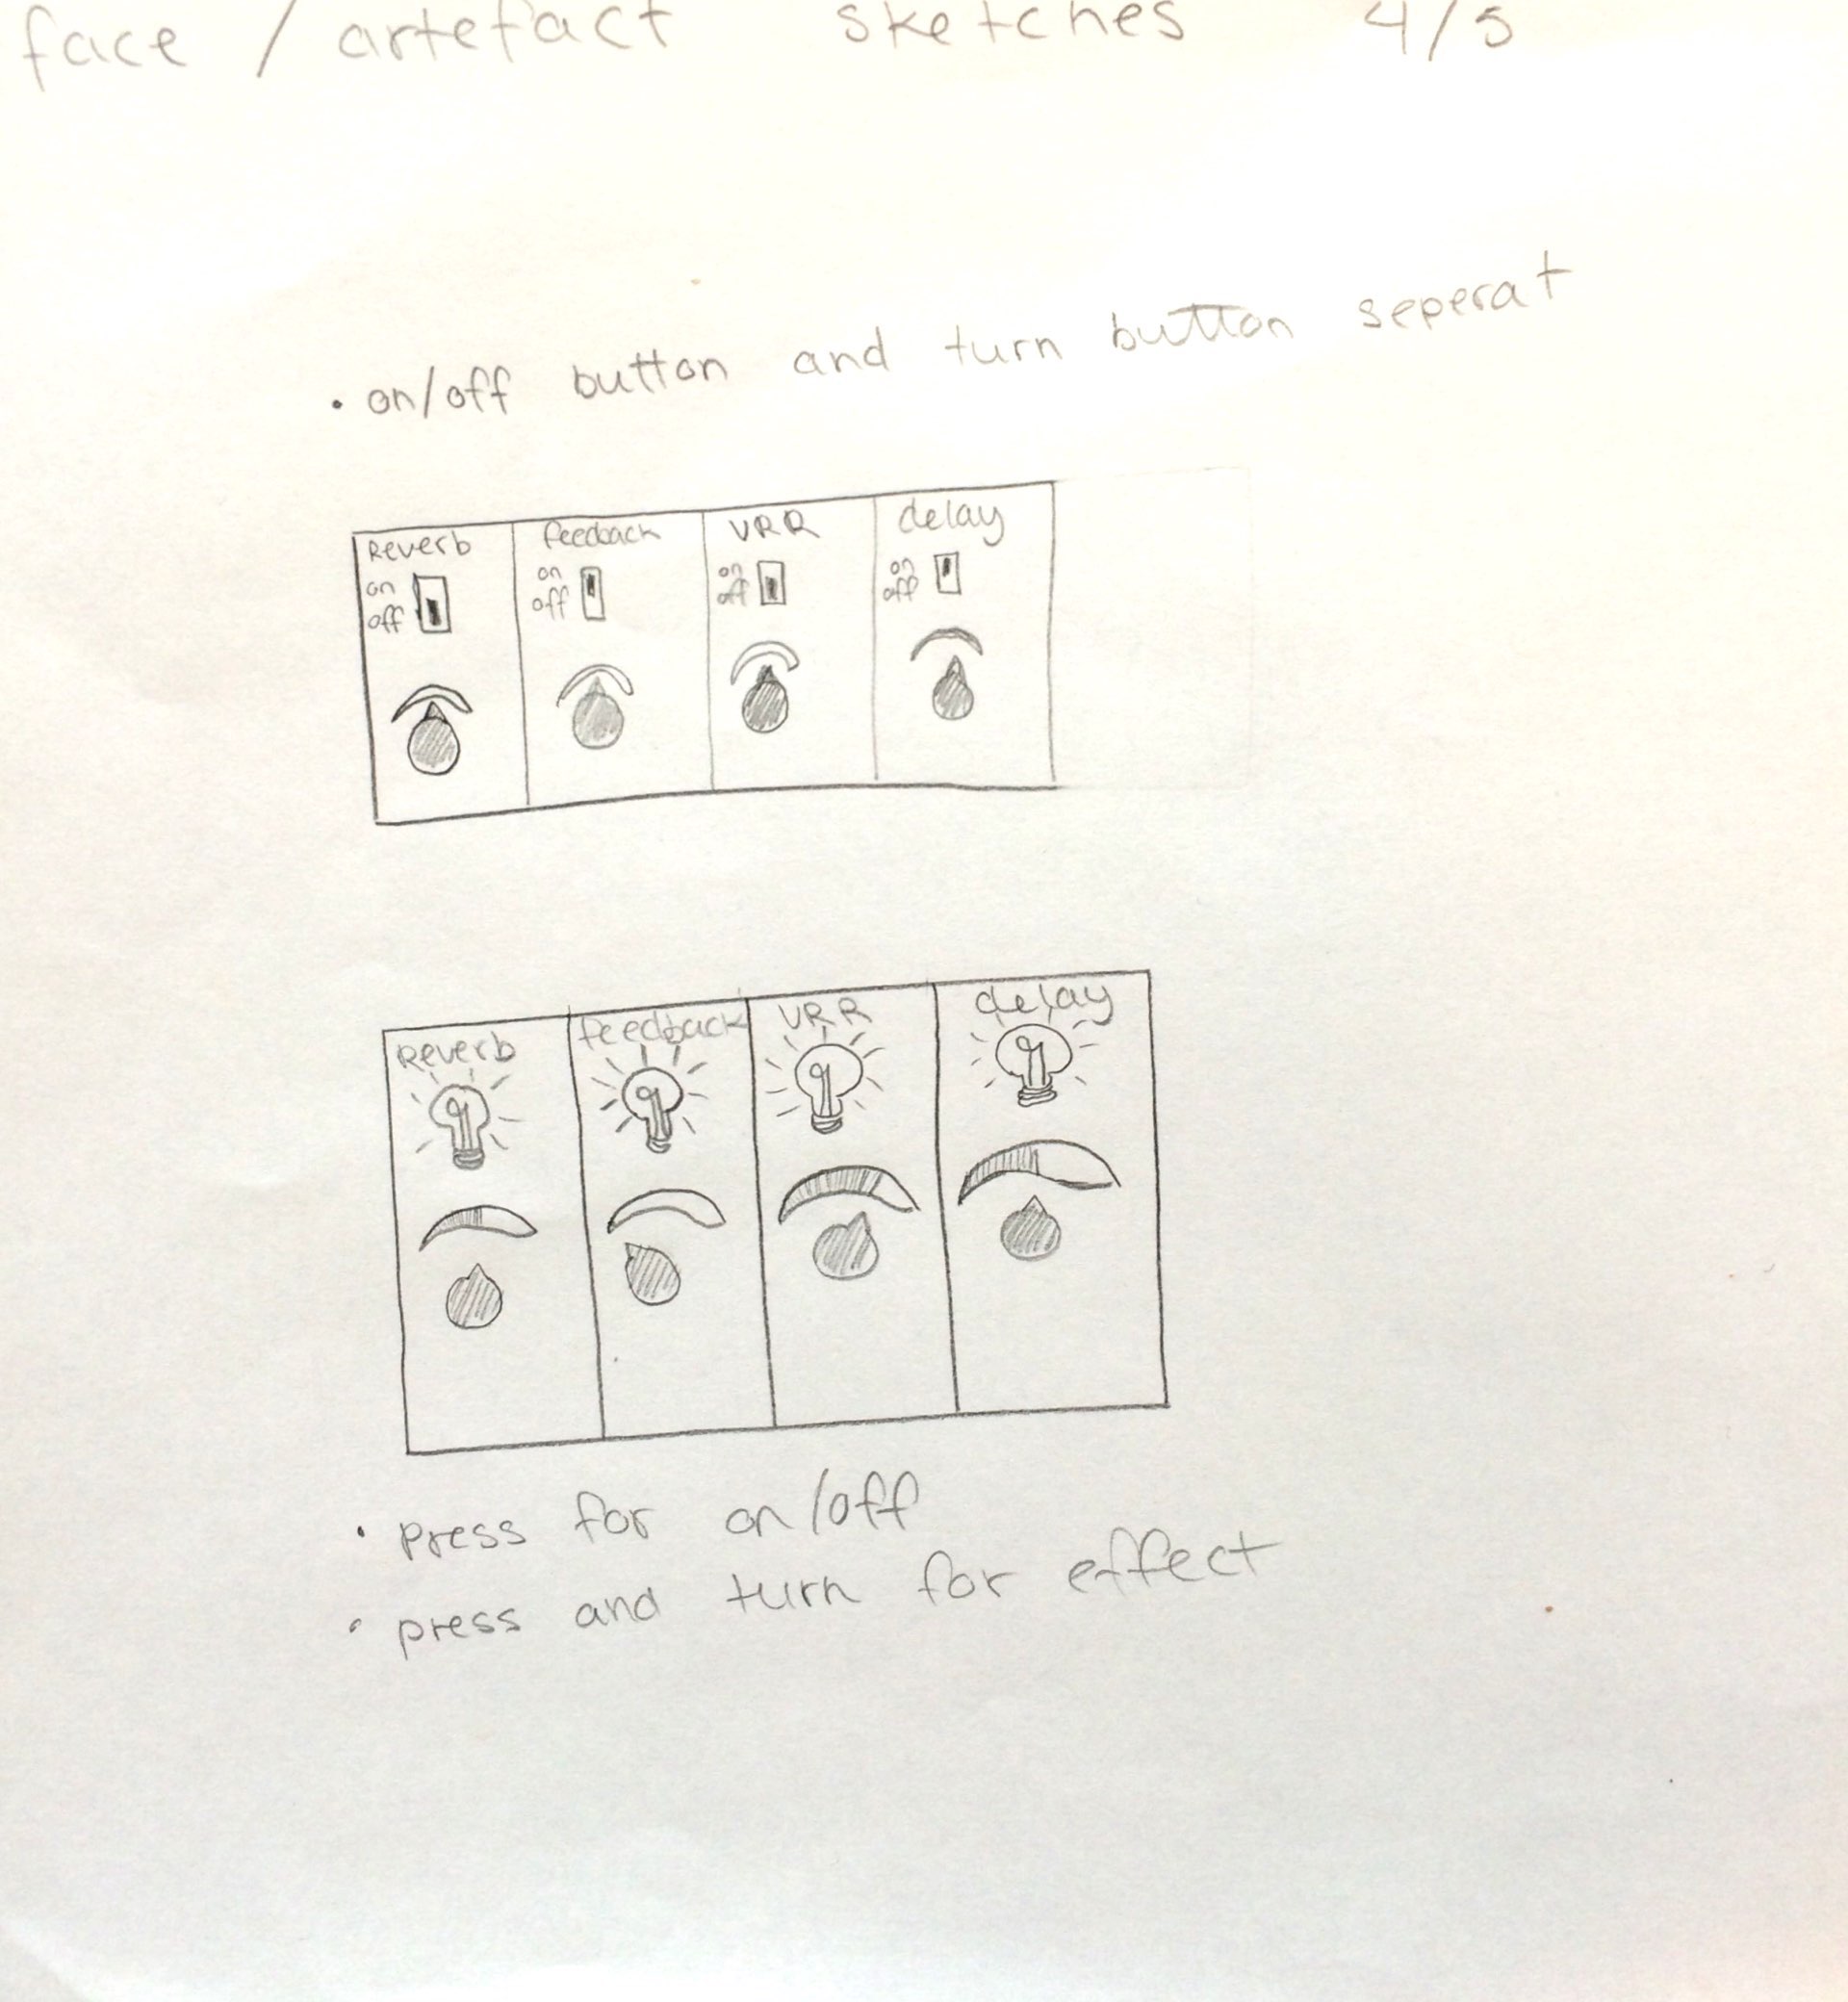 face / artefact sketches 4/5
• on/off button and turn button seperat
Reverb feedback VRR delay
on on on on
off off off off
Reverb feedback VRR delay
• press for on/off
• press and turn for effect